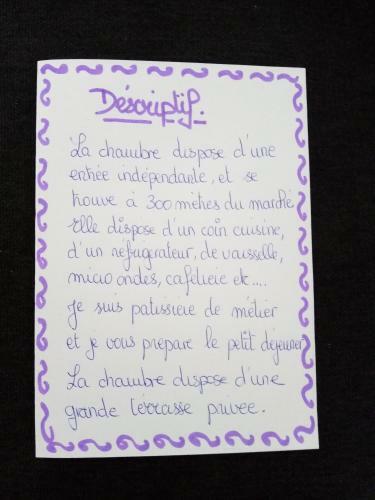 Déscriptif.
La chambre dispose d'une
entrée indépendante, et se
trouve à 300 mètres du marché
Elle dispose d'un coin cuisine,
d'un réfrigérateur, de vaisselle,
micro ondes, cafetiere etc....
Je suis patissiere de métier
et je vous prépare le petit déjeuner
La chambre dispose d'une
grande terrasse privee.